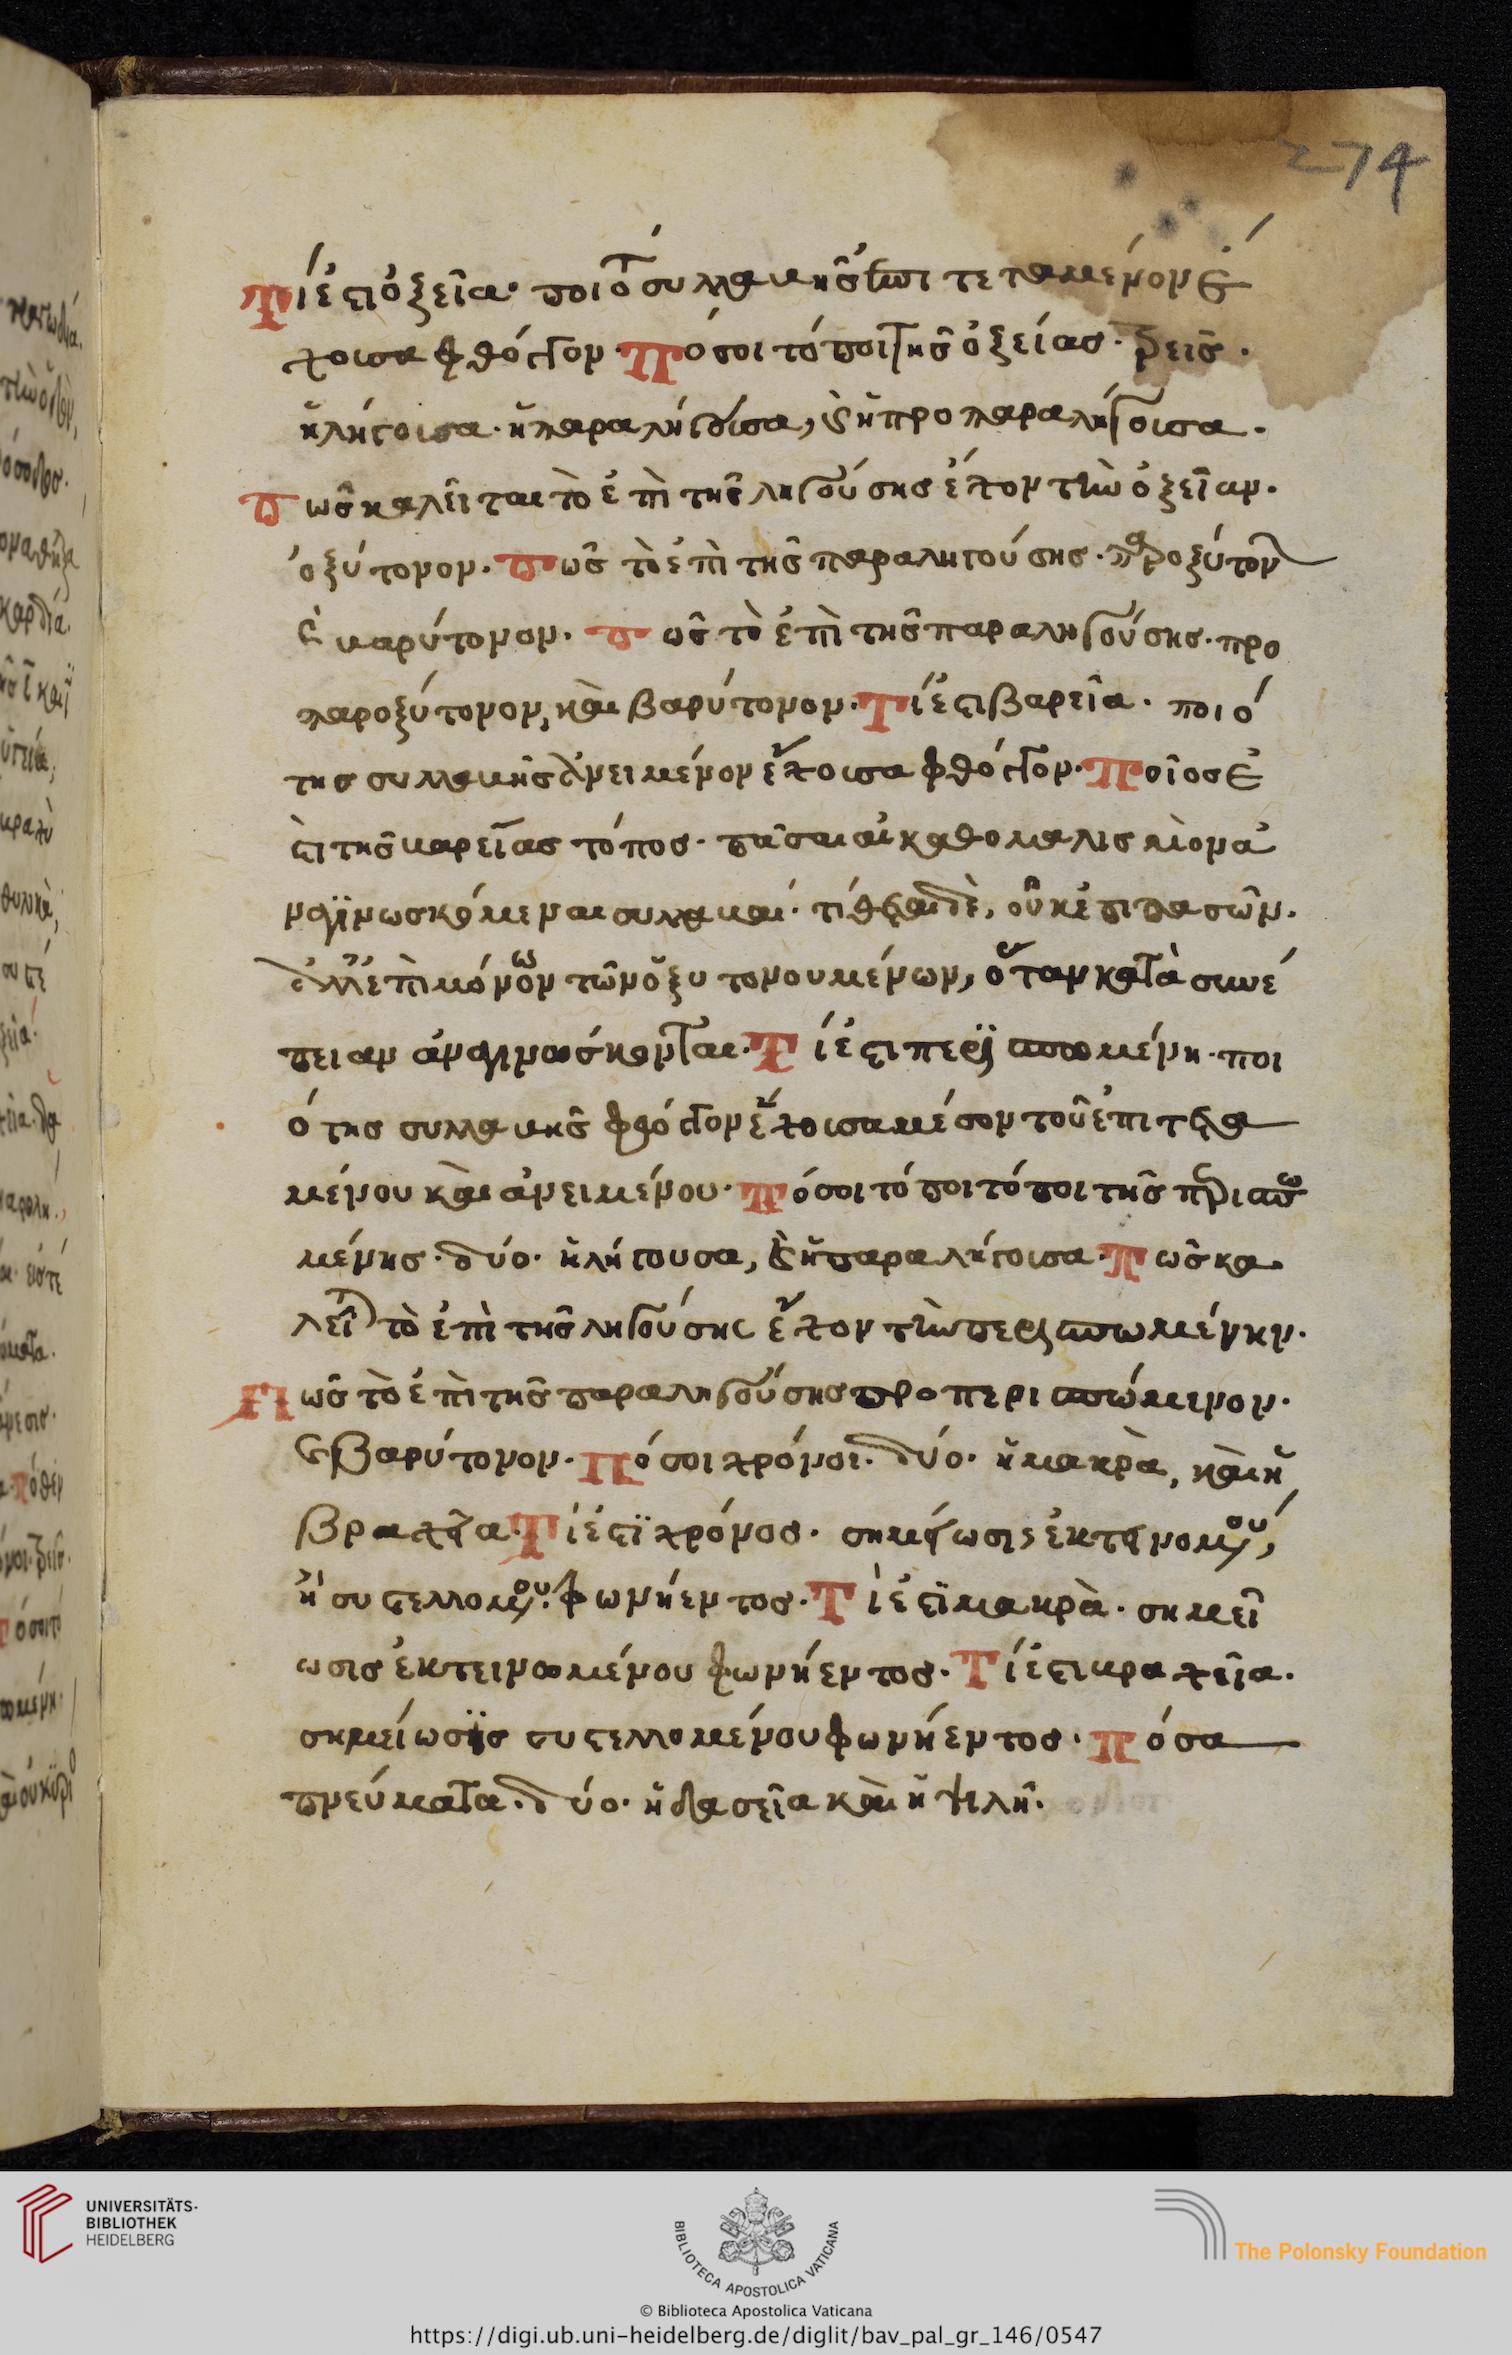 274
Τί ἐστι ὀξεῖα· ποιότης συλλαβῆς ἐπιτεταμένον ἔ
χοισα φθόγγον· Πόσοι τόποι τῆς ὀξείας· τρεῖς·
ἡ λήγοισα· ἡ παραλήγοισα, καὶ ἡ προπαραλήγοισα·
πῶς καλεῖται τὸ ἐπὶ τῆς ληγούσης ἔχον τὴν ὀξεῖαν·
ὀξύτονον· πῶς τὸ ἐπὶ τῆς παραληγούσης· παροξύτονον
καὶ βαρύτονον· πῶς τὸ ἐπὶ τῆς παραληγούσης· προ
παροξύτονον, καὶ βαρύτονον· Τί ἐστι βαρεῖα· ποιό
της συλλαβῆς ἀνειμένον ἔχοισα φθόγγον· Ποῖος ἐ
στὶ τῆς βαρείας τόπος· πᾶσαι αἱ καθομαλισμὸν ἀ
ναγϊνωσκόμεναι συλλαβαί· τίθεται δὲ, οὐκ ἐπὶ πασῶν·
ἀλλ' ἐπὶ μόνων τῶν ὀξυτονουμένων, ὅταν κατὰ συνέ
πειαν ἀναγινωσκονται· Τί ἐστι περισπωμένη· ποι
ότης συλλαβῆς φθόγγον ἔχοισα μέσον τοῦ ἐπιτετα
μένου καὶ ἀνειμένου· πόσοι τόποι τόποι τῆς περισπω
μένης· δύο· ἡ λήγουσα, καὶ ἡ παραλήγοισα· Πῶς κα
λεῖται τὸ ἐπὶ τῆς ληγούσης ἔχον τὴν περισπωμένην·
Πῶς τὸ ἐπὶ τῆς παραληγούσης προπερισπώμενον·
καὶ βαρύτονον· Πόσοι χρόνοι· δύο· ἡ μακρὰ, καὶ ἡ
βραχεῖα· Τί ἐστϊ χρόνος· σημείωσις ἐκτεινομένου,
ἢ συστελλομένου φωνήεντος· Τί ἐστϊ μακρὰ· σημεῖ
ωσις ἐκτεινομένου φωνήεντος· Τί ἐστι βραχεῖα·
σημείωσϊς συστελλομένου φωνήεντος· πόσα
πνεύματα· δύο· ἡ δασεῖα καὶ ἡ ψιλῆ·
UNIVERSITÄTS-
BIBLIOTHEK
HEIDELBERG
BIBLIOTECA APOSTOLICA VATICANA
The Polonsky Foundation
© Biblioteca Apostolica Vaticana
https://digi.ub.uni-heidelberg.de/diglit/bav_pal_gr_146/0547